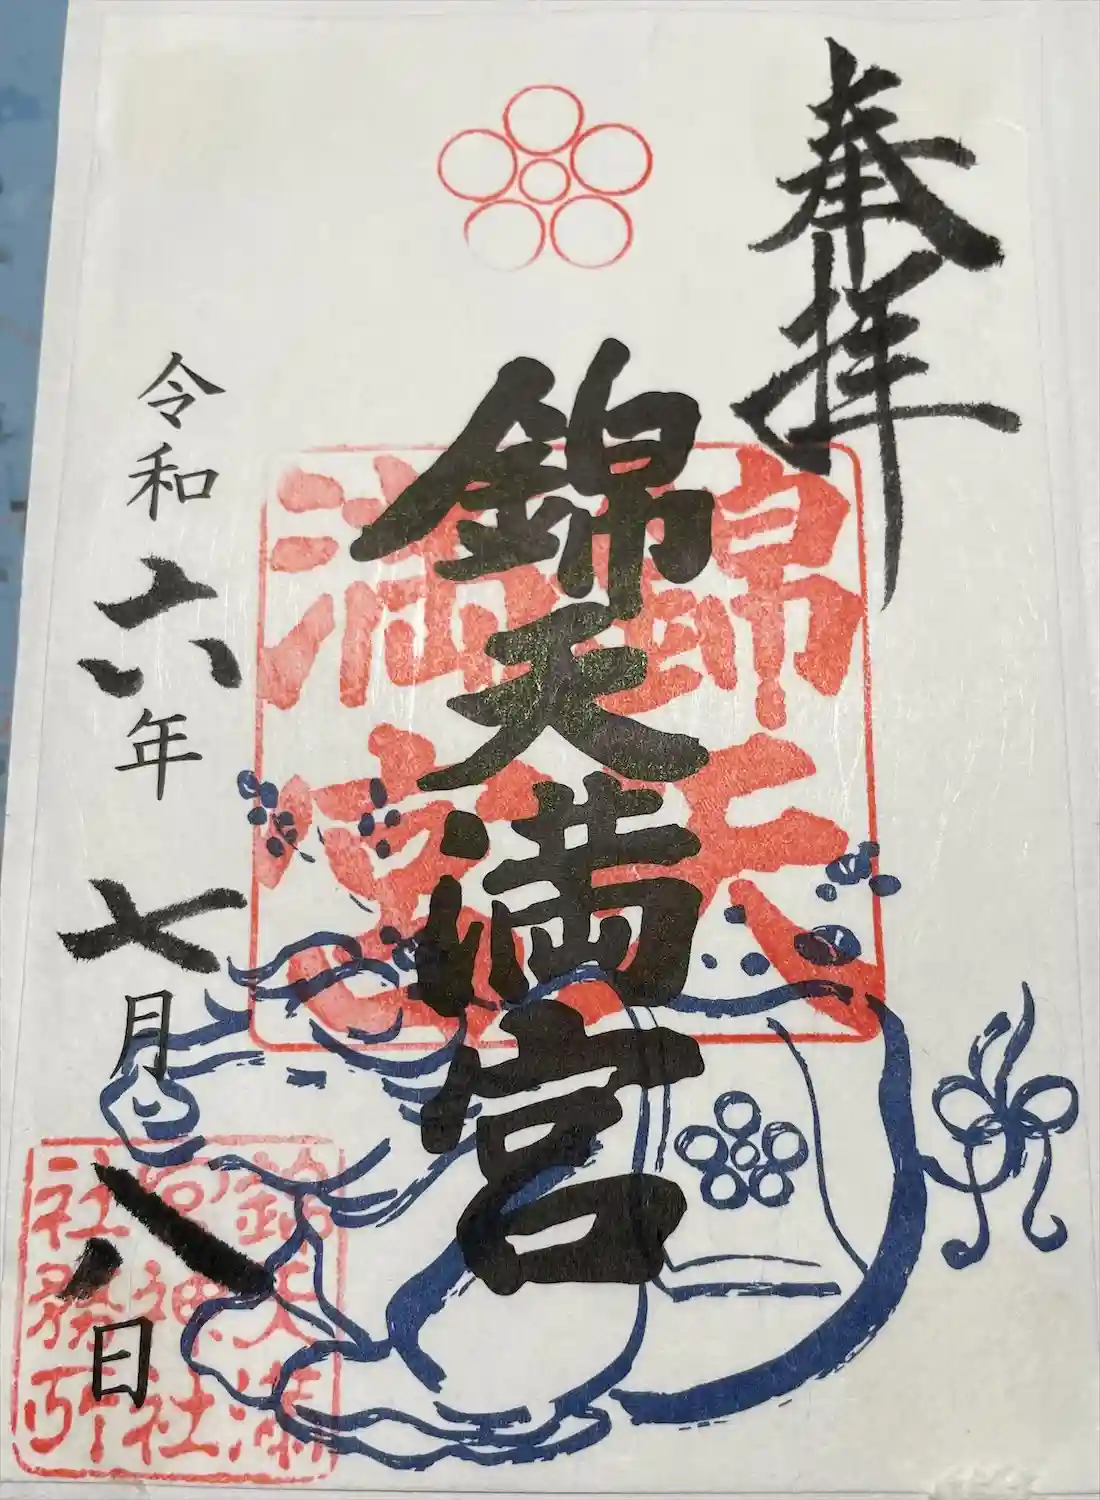 奉拝
錦天満宮
令和六年七月八日
錦天
満宮
錦天満
宮神社
社務所